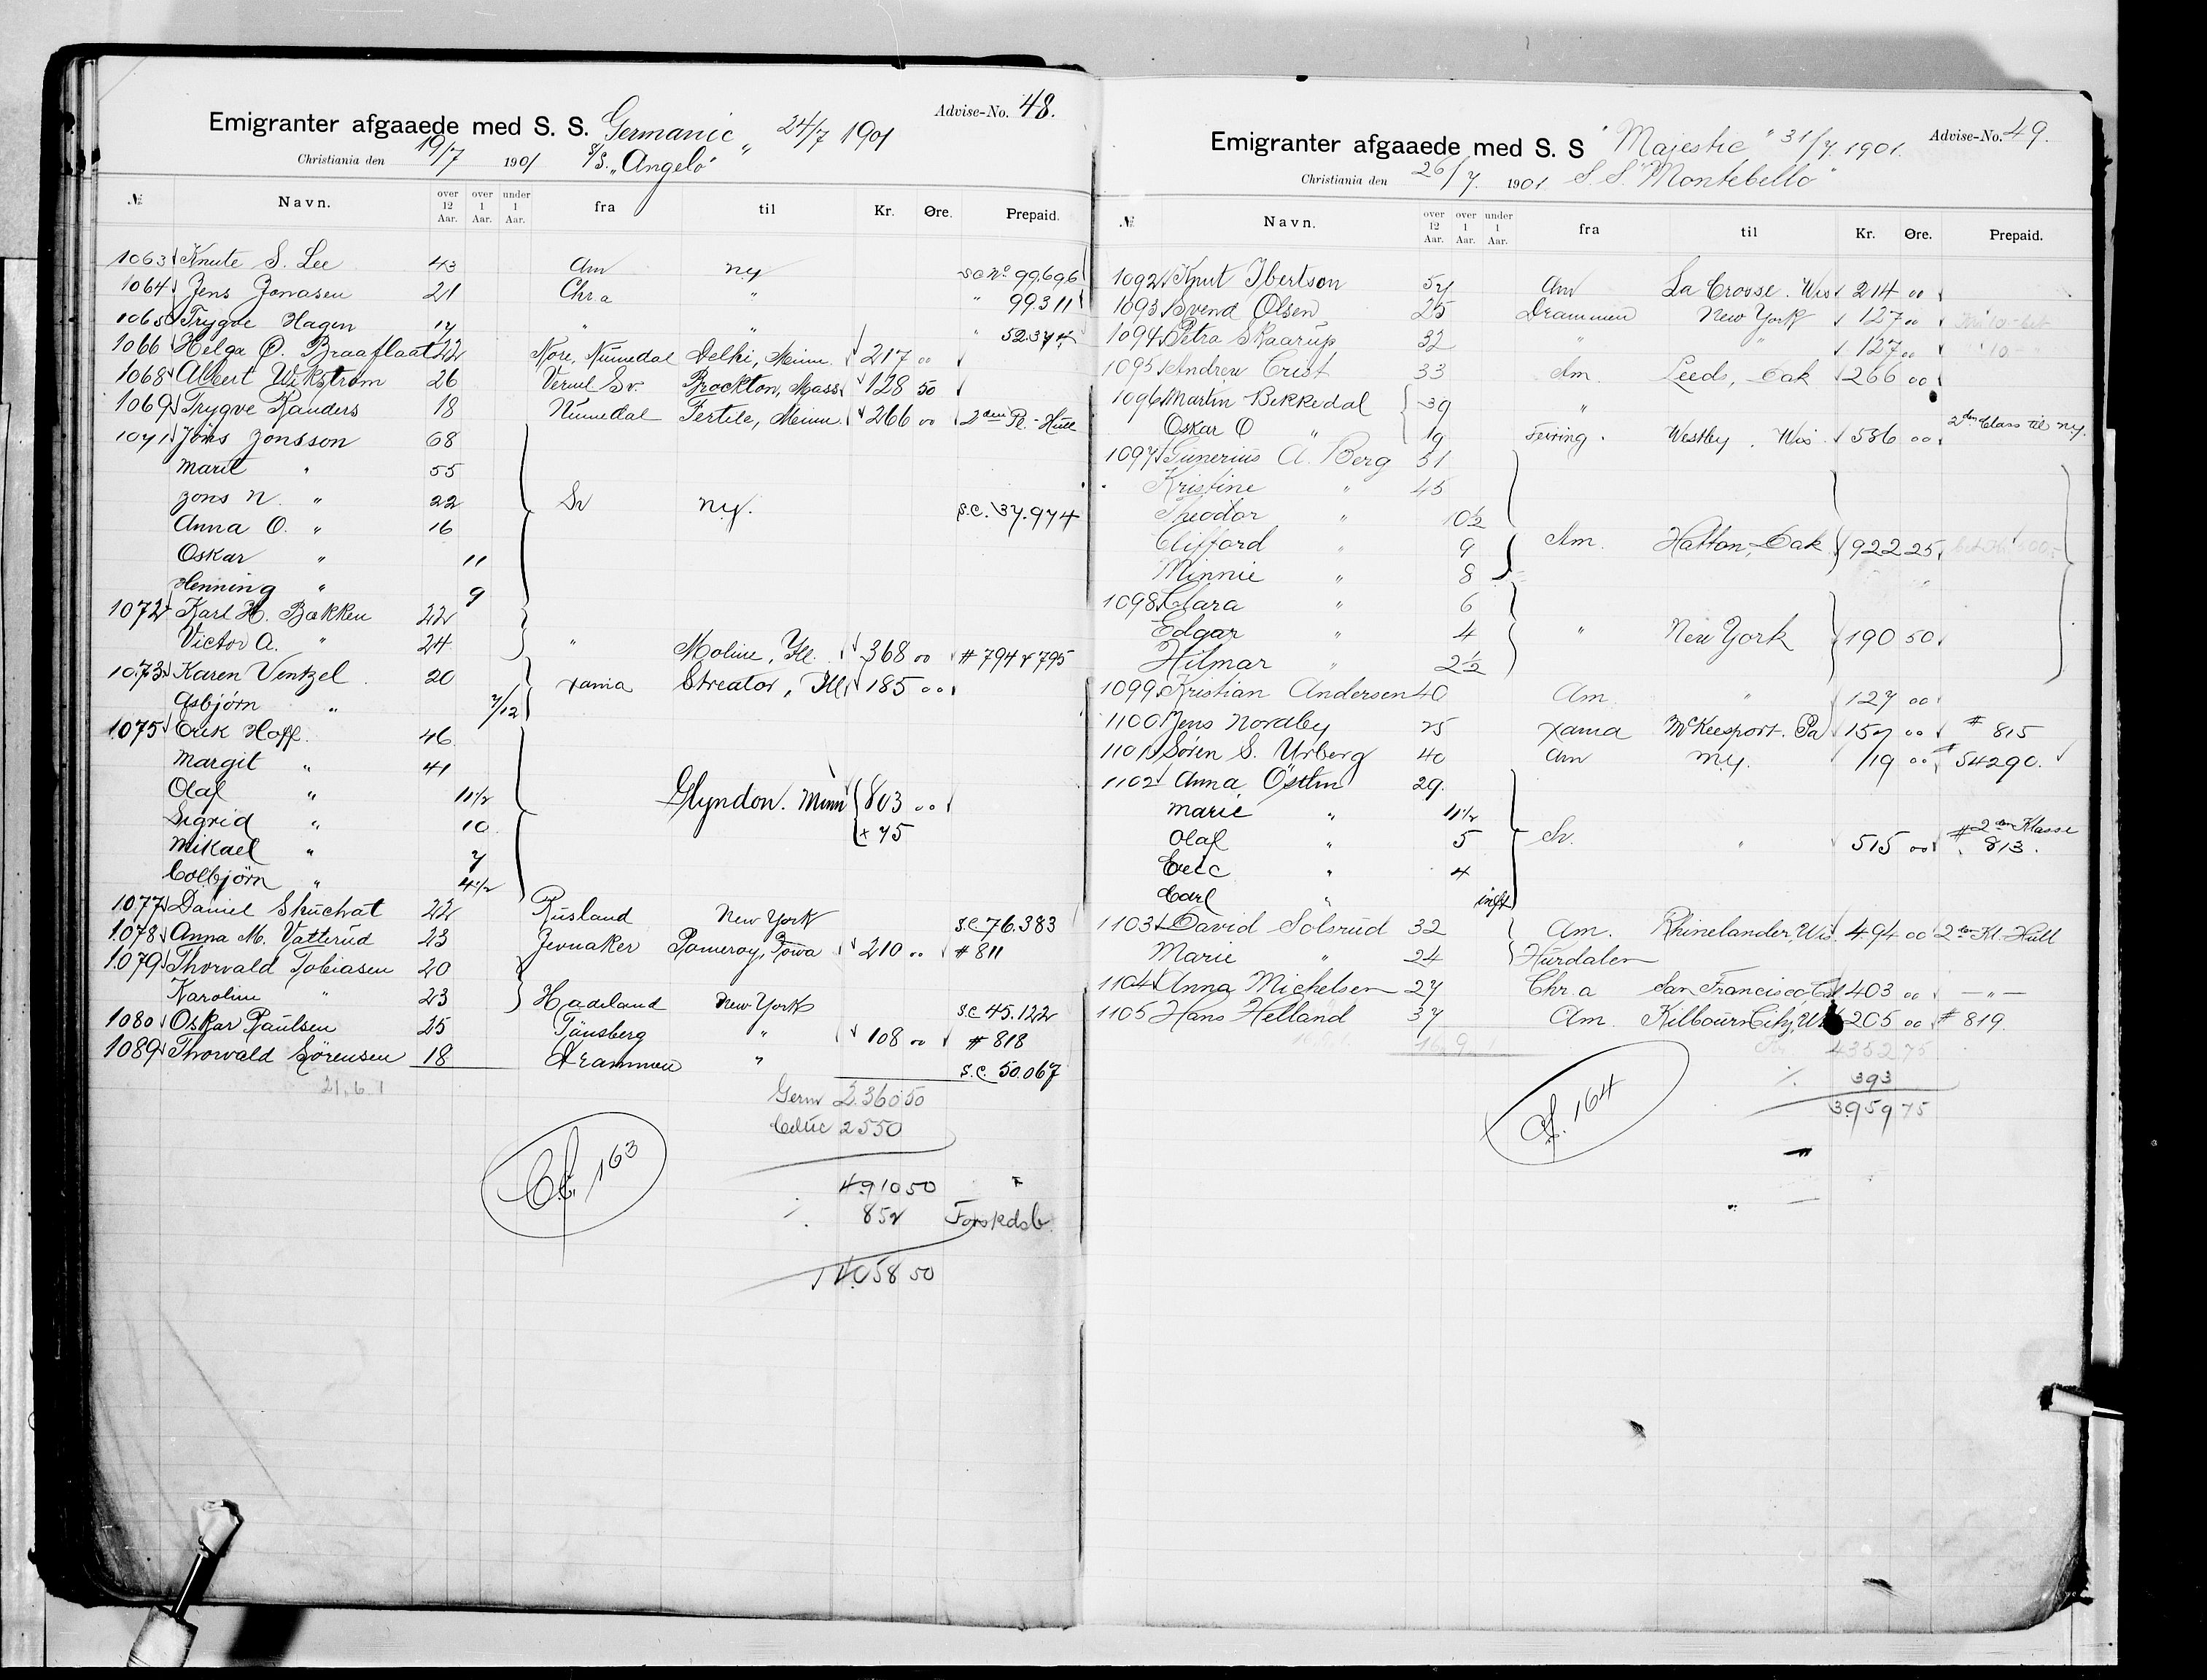 Emigranter afgaaede med S. S. Germanic „ 24/7 1901 Advise-No. 48.
Christiania den 19/7 1901 S/S. „Angelo"
№ Navn. over 12 Aar. over 1 Aar. under 1 Aar. fra til Kr. Øre. Prepaid.
1063 Knute S. Lee 43 Am ny sc No 99.696
1064 Jens Jonasen 21 Chra " " 99311
1065 Trygve Hagen 17 " " " 52.374
1066 Helga O. Braaflaat 22 Nore, Numedal Delhi, Minn. 217 00
1068 Albert Wikström 26 Sv. Brockton, Mass 128 50
1069 Trygve Randers 18 Numedal Fertile, Minn. 266 00 2den Pl. Hull
1071 Jöns Jonsson 68
Marit " 55
Jons N. " 22 Sv ny. s.c. 37.974
Anna O. " 16
Oskar " 11
Henning " 9
1072 Karl H. Bakken 22
Victor A. " 24 " Moline, Ill. 368 00 # 794 & 795
1073 Karen Ventzel 20 Xania Streator, Ill 185 00
Asbjørn " 7/12
1075 Erik Hoff 46
Margit " 41
Olaf " 11 1/2 Glyndon. Minn 803 00
Sigrid " 10 x 75
Mikael " 7
Colbjörn " 4 1/2
1077 Daniel Skuchat 22 Rusland New York s.c 76.383
1078 Anna M. Vatterud 23 Jevnaker Pomeroy, Iowa 210 00 # 811
1079 Thorvald Tobiasen 20
Karoline " 23 Hadeland New York s.c 45.122
1080 Oskar Paulsen 25 Tønsberg " 108 00 # 818
1089 Thorvald Sörensen 18 Drammen " s.c. 50.067
21.6.1 Germ 2.360 50
Celtic 2550
Cf. 163
4910 50
%. 852 Forskdsb.
4058 50
Emigranter afgaaede med S. S "Majestic" 31/7. 1901. Advise-No. 49.
Christiania den 26/7. 1901. S. S. "Montebello"
№ Navn. over 12 Aar. over 1 Aar. under 1 Aar. fra til Kr. Øre. Prepaid.
1092 Knut Ibertson 57 Am La Crosse. Wis 214 00
1093 Svend Olsen 25 Drammen New York 127 00
1094 Petra Skaarup 32 " " 127 00
1095 Andrew Crist 33 Am. Leeds, Dak 266 00
1096 Martin Bekkedal 39 "
Oskar O " 19 Feiring. Westby. Wis. 586 00 2den Class til ny.
1097 Gunerius A. Berg 51
Kristine " 45
Theodor " 10 1/2
Clifford " 9 Am. Hatton, Dak 922 25
Minnie " 8
1098 Clara " 6
Edgar " 4 " New York 190 50
Hilmar " 2 1/2
1099 Kristian Andersen 40 Am. " 127 00
1100 Jens Nordby 25 Xania McKeesport. Pa 157 00 # 815
1101 Sören S. Urberg 40 Am ny. 119 00 # 54290.
1102 Anna Östlin 29.
Marie " 11 1/2
Olaf " 5 Sv. " 515 00 # 2den Klasse 813.
Eric " 4
Carl " inft
1103 David Solsrud 32 Am. Rhinelander, Wis. 494 00 2den Kl. Hull
Marie " 24 Hurdalen
1104 Anna Michelsen 27 Chra San Francisco, Cal 403 00 — " —
1105 Hans Helland 37 Am. Kilbourn City, Wis 205 00 # 819.
4352 75
%. 393
3959 75
Cf. 164